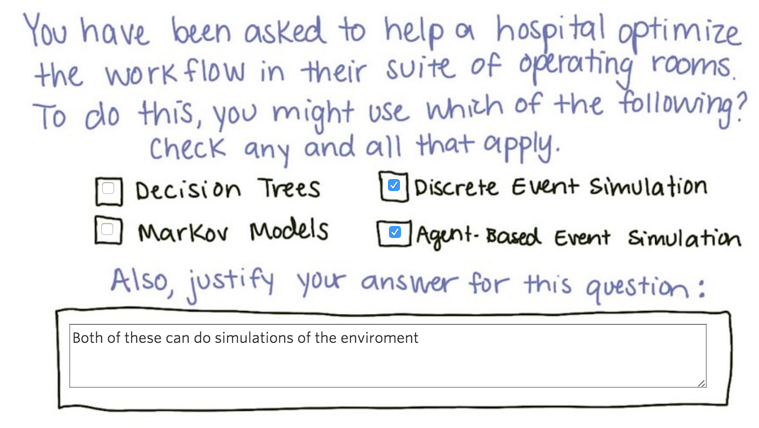 You have been asked to help a hospital optimize
the workflow in their suite of operating rooms.
To do this, you might use which of the following?
Check any and all that apply.
Decision Trees
Discrete Event Simulation
Markov Models
Agent-Based Event Simulation
Also, justify your answer for this question:
Both of these can do simulations of the enviroment